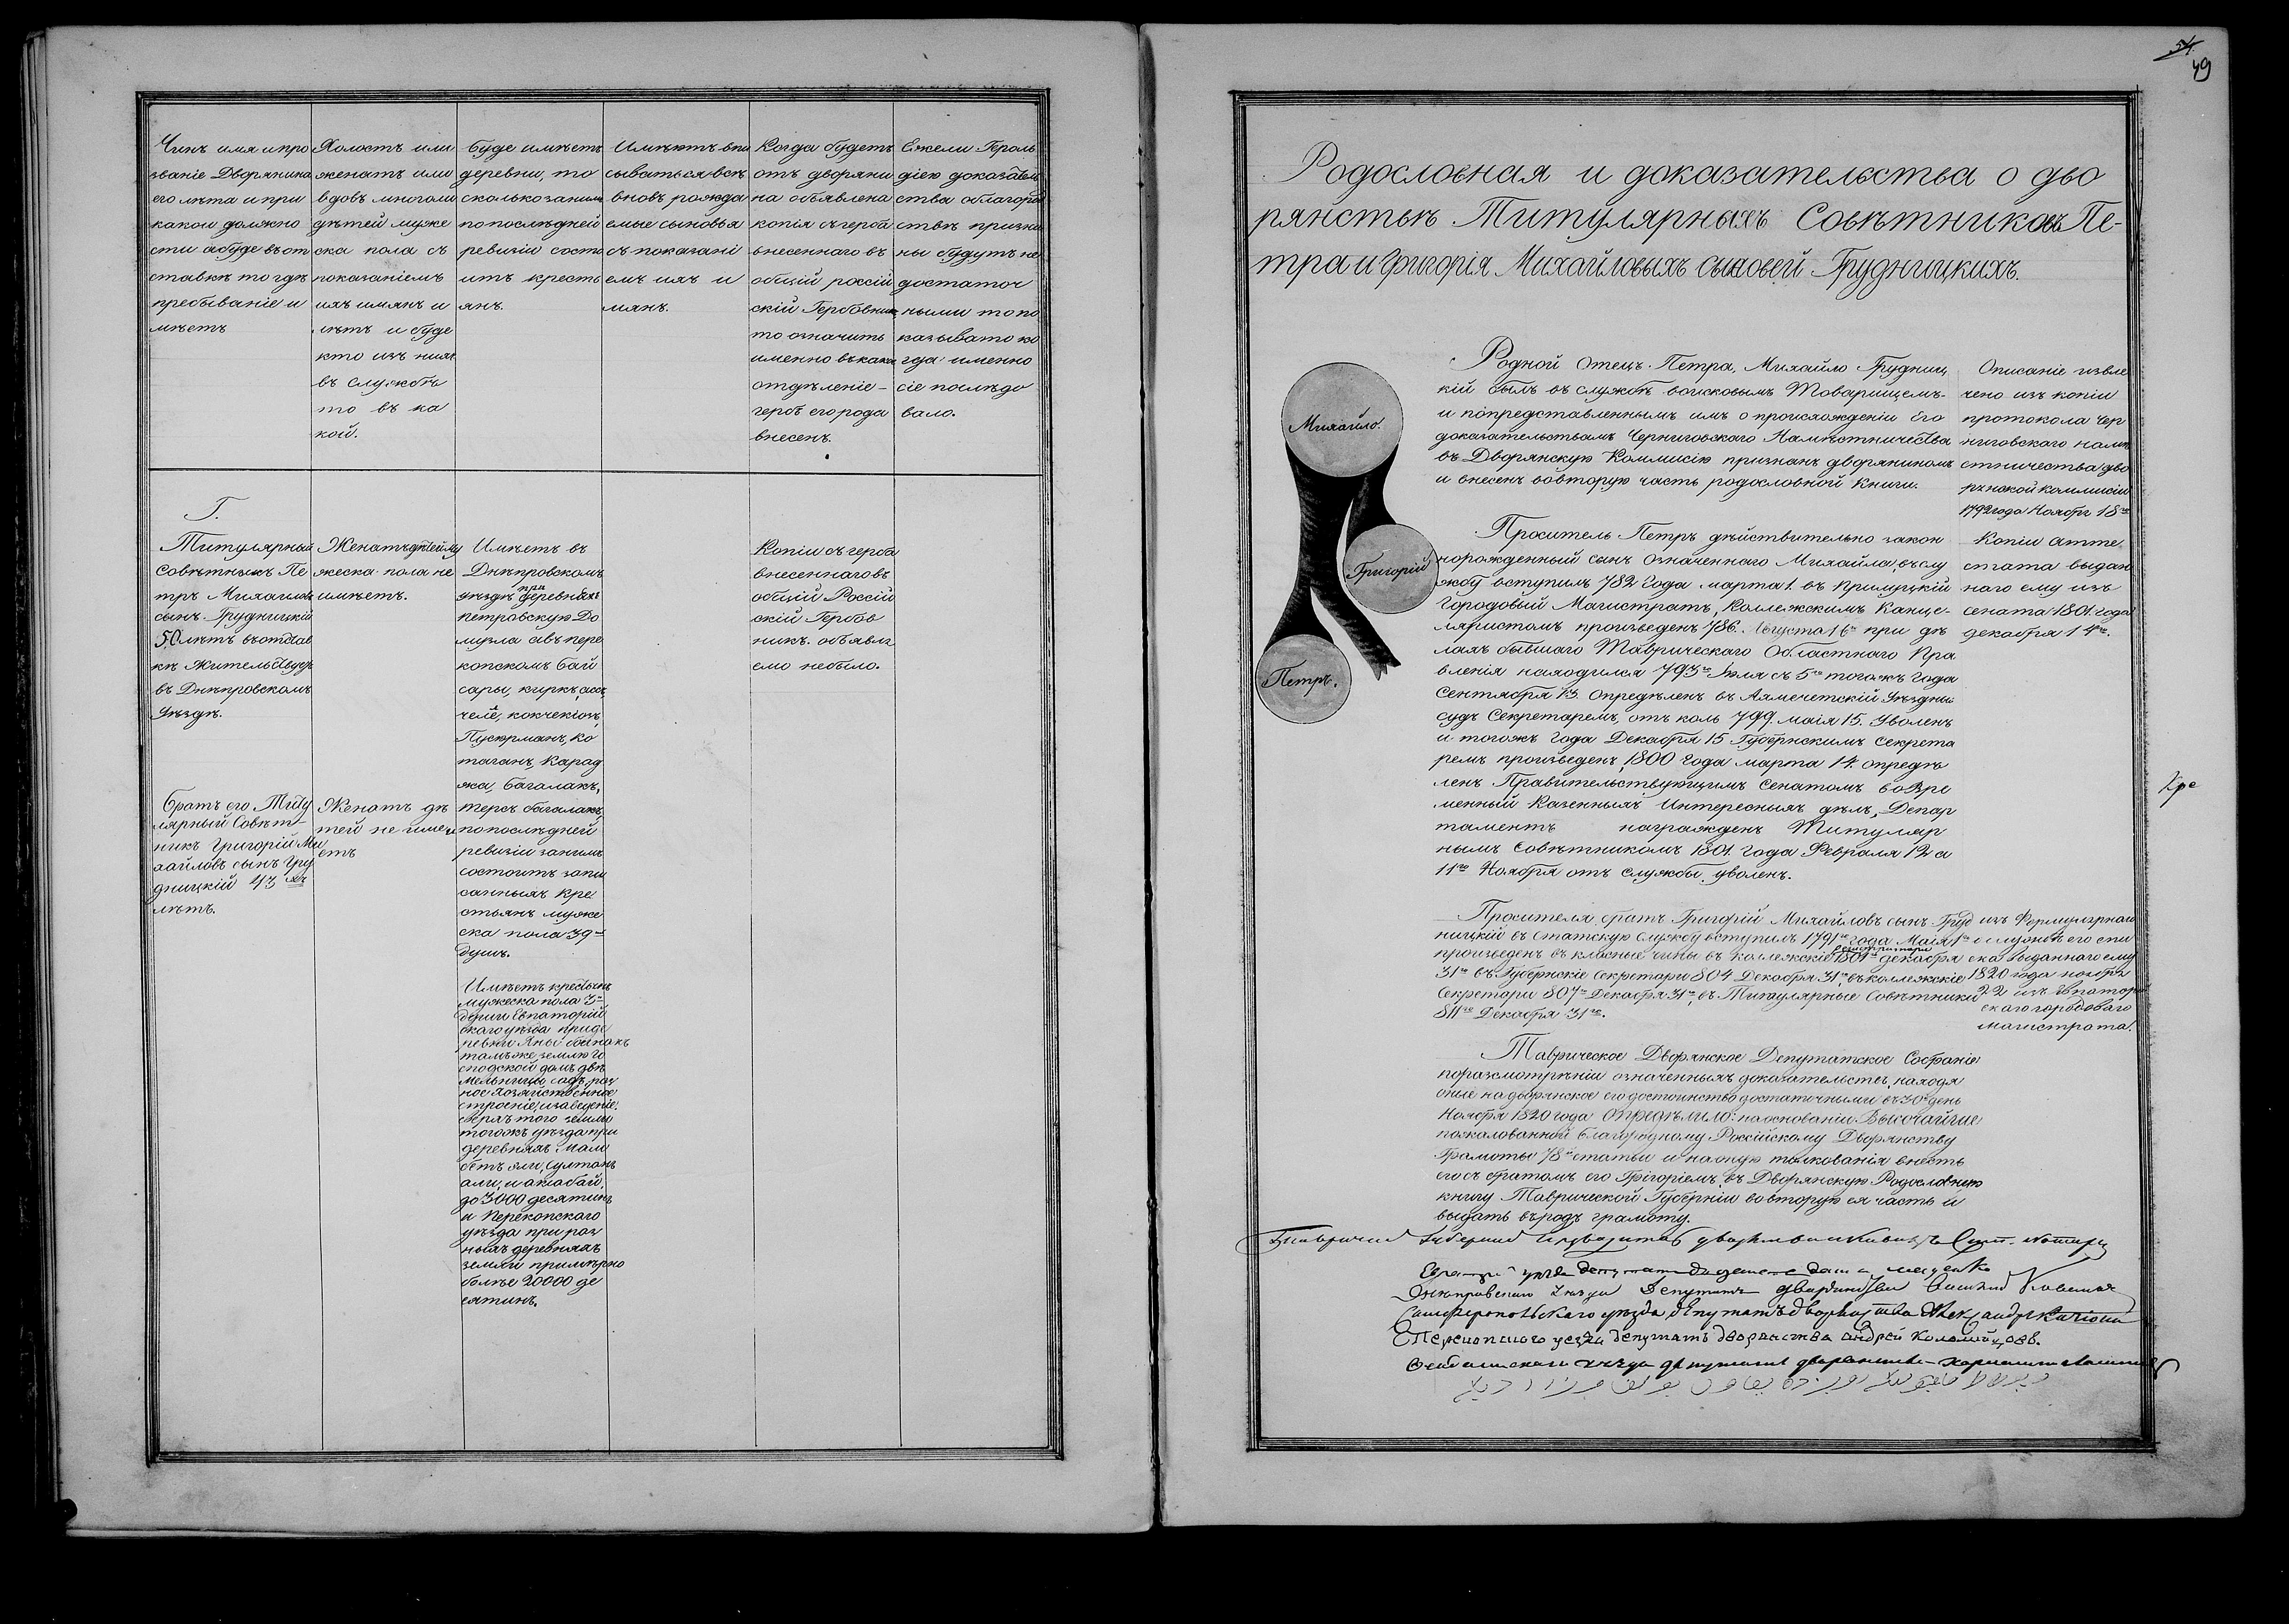 Чинъ имя и про
званіе Дворянина
его лѣта и при
какой должно
сти абуде въот
ставкѣ то гдѣ
пребываніе и
мѣетъ
Холостъ или
женатъ или
вдовъ многоли
дѣтей муже
ска пола съ
показаніемъ
ихъ имянъ и
лѣтъ и буде
кто изъ нихъ
въ службѣ
то въ ка
кой.
буде имѣетъ
деревни, то
сколько заними
попослѣдней
ревизіи состо
итъ кресть
янъ.
Имѣютъ впи
сываться всѣ
вновь рожда
емые сыновья
съ показані
емъ ихъ и
мянъ.
Когда будетъ
отъ дворяни
на объявлена
копія съ герба
внесеннаго въ
общій россій
скій Гербовникъ
то означить
именно въ какое
отдѣленіе –
гербъ его рода
внесенъ.
Ежели Героль
діею доказатель
ства облагород
ствѣ призна
ны будутъ не
достаточ
ными то по
казывато ко
гда именно
сіе послѣдо
вало.
Г.
Титулярный
Совѣтникъ Пе
тръ Михайловъ
сынъ Грудницкій
50 лѣтъ въ отстав
кѣ жительствуетъ
въ Днѣпровскомъ
уѣздѣ.
Братъ его Титу
лярный Совѣт
никъ Григорій Ми
хайловъ сынъ Гру
дницкій 43 хъ
лѣтъ.
Женатъ дѣтей му
жеска пола не
имѣетъ.
Женатъ дѣ
тей не имѣ
етъ
Имѣетъ въ
Днѣпровскомъ
уѣздѣ при деревняхъ
петровскую До
музла авъ пере
копскомъ бай
сары, киркъ, асс
челе, кокчекіозъ,
Пусюрманъ, Ко
таганъ, Карад
жа, багалакъ,
терсъ багалакъ,
попослѣдней
ревизіи занимъ
состоитъ запи
санныхъ кре
стьянъ муже
ска пола 39ть
душъ.
Имѣетъ крестьянъ
мужеска пола 3
души Евпаторій
скаго уѣзда приде
ревни Яны
тамъ же землю го
сподской домъ двѣ
мельницы садъ, раз
ное хозяйственное
строеніе, изаведеніе.
сверхъ того земли
тогожъ уѣзда при
деревняхъ Мами
бетъ али, Султанъ
али, и акабай,
до 3000 десятинъ
и Перекопскаго
уѣзда при раз
ныхъ деревняхъ
земли примѣрно
болѣе 20000 де
сятинъ.
Копіи съ герба
внесеннаго въ
общій Россій
скій Гербов
никъ. объявля
емо небыло.
54
49
Родословная и доказательства о дво
рянствѣ Титулярныхъ Совѣтниковъ Пе-
тра и Григорія Михайловыхъ сыновей Грудницкихъ.
Михайло.
Григорій
Петръ.
Родной отецъ Петра, Михайло Грудниц
кій былъ въ службѣ войсковымъ Товарищемъ-
и попредставленнымъ имъ о происхожденіи Его
доказательствамъ Черниговскаго Намѣстничества
въ Дворянскую Коммисію признанъ дворяниномъ
и внесенъ вовторую часть родословной Книги.
Описаніе извле
чено изъ копіи
протокола Чер
ниговскаго намѣ
стничества дво
рянской коммисіи
1792 года Ноября 18го
Проситель Петръ дѣйствительно закон
норожденный сынъ означеннаго Михайла, въслу
жбу вступилъ 782 года марта 1. въ Прилуцкій
Городовый Магистратъ, Коллежскимъ Канце-
ляристомъ произведенъ 786. Августа 16 при дѣ
лахъ бывшаго Таврическаго Областнаго Пра
вленія находился 793го Іюля съ 5го тогожъ года
Сентября 13. опредѣленъ въ Ахмечетскій уѣздны
судъ Секретаремъ, отъ коль 799. маія 15. Уволенъ
и тогожъ года Декабря 15 Губернскимъ Секрета
ремъ произведенъ, 1800 года марта 14. опредѣ
ленъ Правительствующимъ Сенатомъ воВре
менный Казенныхъ Интересныхъ дѣлъ, Депар
таментъ награжденъ Титуляр
нымъ Совѣтникомъ 1801. года Февраля 12 а
11го Ноября отъ службы уволенъ.
Копіи атте
стата выдан
наго ему изъ
сената 1801. года
декабря 14го.
Кре
Просителя братъ Григорій Михайловъ сынъ Груд
ницкій въ статскую службу вступилъ 1791го года Маія 1го
произведенъ въ классные чины въ Коллежскіе регистраторы 1801го декабря
31го въ Губернскіе Секретари 804. Декабря 31го, въ коллежскіе
Секретари 807го Декабря 31го, въ Титулярные Совѣтники
811го Декабря 31го.
изъ Формулярнаго
о службѣ его спи
ска выданнаго ему
1820 года ноября
22 изъ Евпаторій
скаго городоваго
магистрата.
Таврическое Дворянское Депутатское Собраніе
поразсмотрѣніи означенныхъ доказательствъ, находя
оные на дворянское его достоинство достаточными въ 30й день
Ноября 1820 года Опредѣлило: наоснованіи Высочайше
пожалованной благородному Россійскому Дворянству
Грамоты 78й статьи и на оную толкованія внесть
его съ братомъ его Грігоріемъ, въ Дворянскую Родословную
книгу Таврической Губерніи вовторую ея часть и
выдать въ родъ грамоту.
Днѣпровскаго Уѣзда Депутатъ дворянства
Симферопольскаго уѣзда депутатъ дворянства Александръ
Перекопскаго уезда депутатъ дворянства андрей Коломойцовъ.